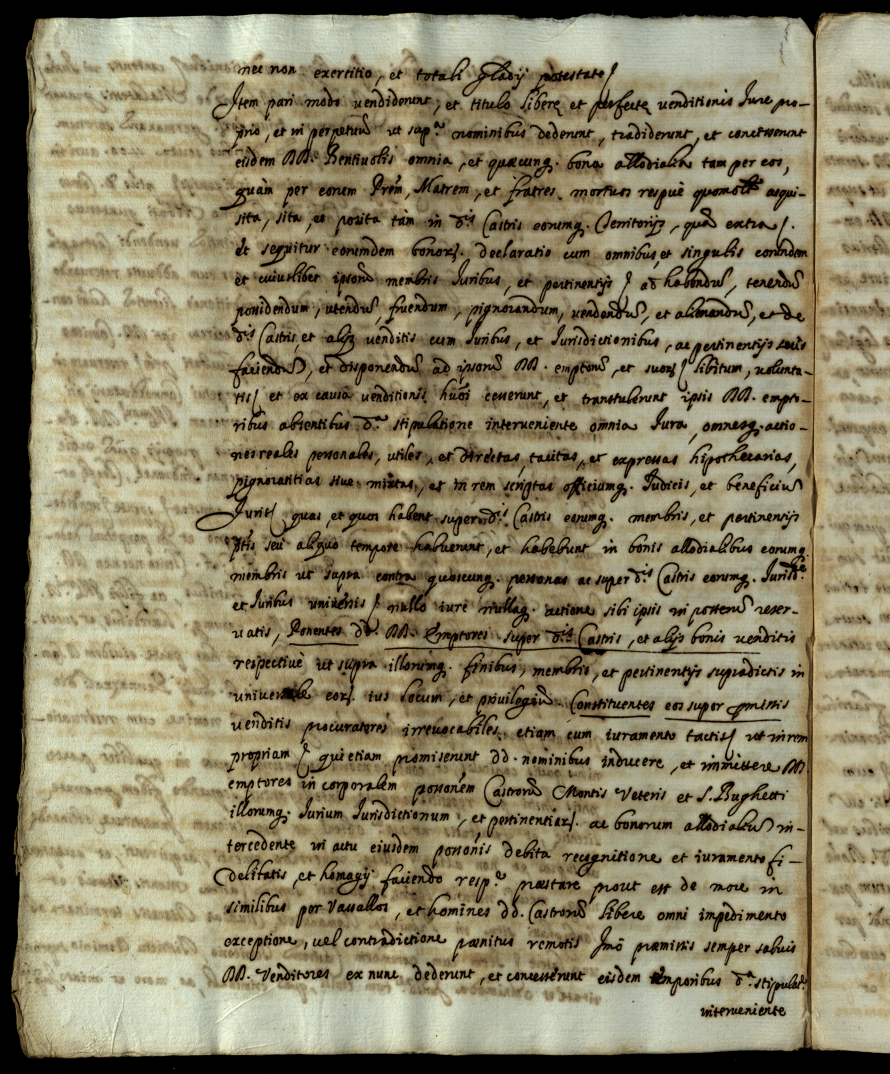 nec non exercitio, et totali gladij potestate
Item pari modo vendiderunt, et titulo liberę et perfectę venditionis Iure pro-
prio, et in perpetuũ ut sup.ᵃ nominibus dederunt, tradiderunt, et concesserunt
eisdem DD. Bentivolis omnia, et quæcunq. bona allodialia tam per eos,
quàm per eorum Prẽm, Matrem, et fratres mortuos respuè acqui-
sita, sita, et posita tàm in d.ⁱˢ Castris eorumq. Territorijs, quã extra.
et sequitur eorumdem bonor. declaratio cum omnibus, et singulis eorundem
et cuiuslibet ipsorũ membris Iuribus, et pertinentijs ad habendũ, tenendũ
possidendum, utendũ, fruendum, pignorandum, vendendũ, et alienandũ, et de
d.ⁱˢ Castris, et alijs venditis cum Iuribus, et Iurisdictionibus, ac pertinentijs suis
faciendũ, et disponendũ ad ipsorũ DD. emptorũ, et suor. libitum, volunta-
tis et ex causa venditionis huõi cesserunt, et transtulerunt ipsis DD. empto-
ribus absentibus d.ᵃ stipulatione interveniente omnia Iura, omnesq. actio-
nes reales personales, utiles, et directas, tacitas, et expressas hipothecarias,
pignoratitias sive mixtas, et in rem scriptas officiumq. Iudicis, et beneficiũ
Iuris quas, et quos habent super d.ⁱˢ Castris eorumq. membris, et pertinentijs
ptis seù aliquo tempore habuerunt, et habebunt in bonis allodialibus eorumq.
membris ut supra contra quoscunq. personas ac super d.ⁱˢ Castris eorumq. Iurisd.ⁿᵉ
et Iuribus universis nullo iure nullaq. actione sibi ipsis in posterũ reser-
vatis, Ponentes d.ᵒˢ DD. Emptores super d.ⁱˢ Castris, et alijs bonis venditis
respectivè ut supra illorumq. finibus, membris, et pertinentijs supradictis in
universale eor. ius locum, et privilegiũ Constituentes eos super pmissis
venditis procuratores irrevocabiles etiam cum iuramento tactis ut in rem
propriam qui etiam promiserunt dd. nominibus inducere, et immittere DD.
emptores in corporalem possẽm Castrorũ Montis Veteris et S. Bughetti
illorumq. Iurium Iurisdictionum, et pertinentiar. ac bonorum allodialiũ in-
tercedente in actu eiusdem possõnis debita recognitione et iuramento fi-
delitatis, et homagij faciendo resp.ᵉ præstare prout est de more in
similibus per Vassallos, et homines dd. Castrorũ libere omni impedimento
exceptione, vel contradictione pænitus remotis Imò præmissis semper salvis
DD. Venditores ex nunc dederunt, et concesserunt eisdem emptoribus d.ᵃ stipulat.ᵉ
interveniente